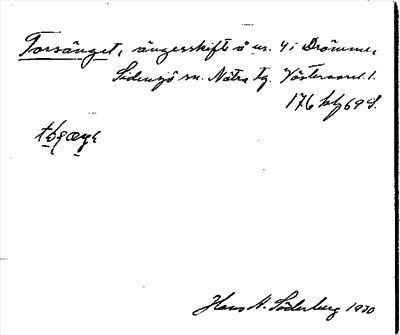 Torsänget, ängesskifte å nr. 4 i Drömme,
Sidensjö sn. Nätra tg. Västernorrl. l.
176 69 S.
Hans A. Söderberg 1930